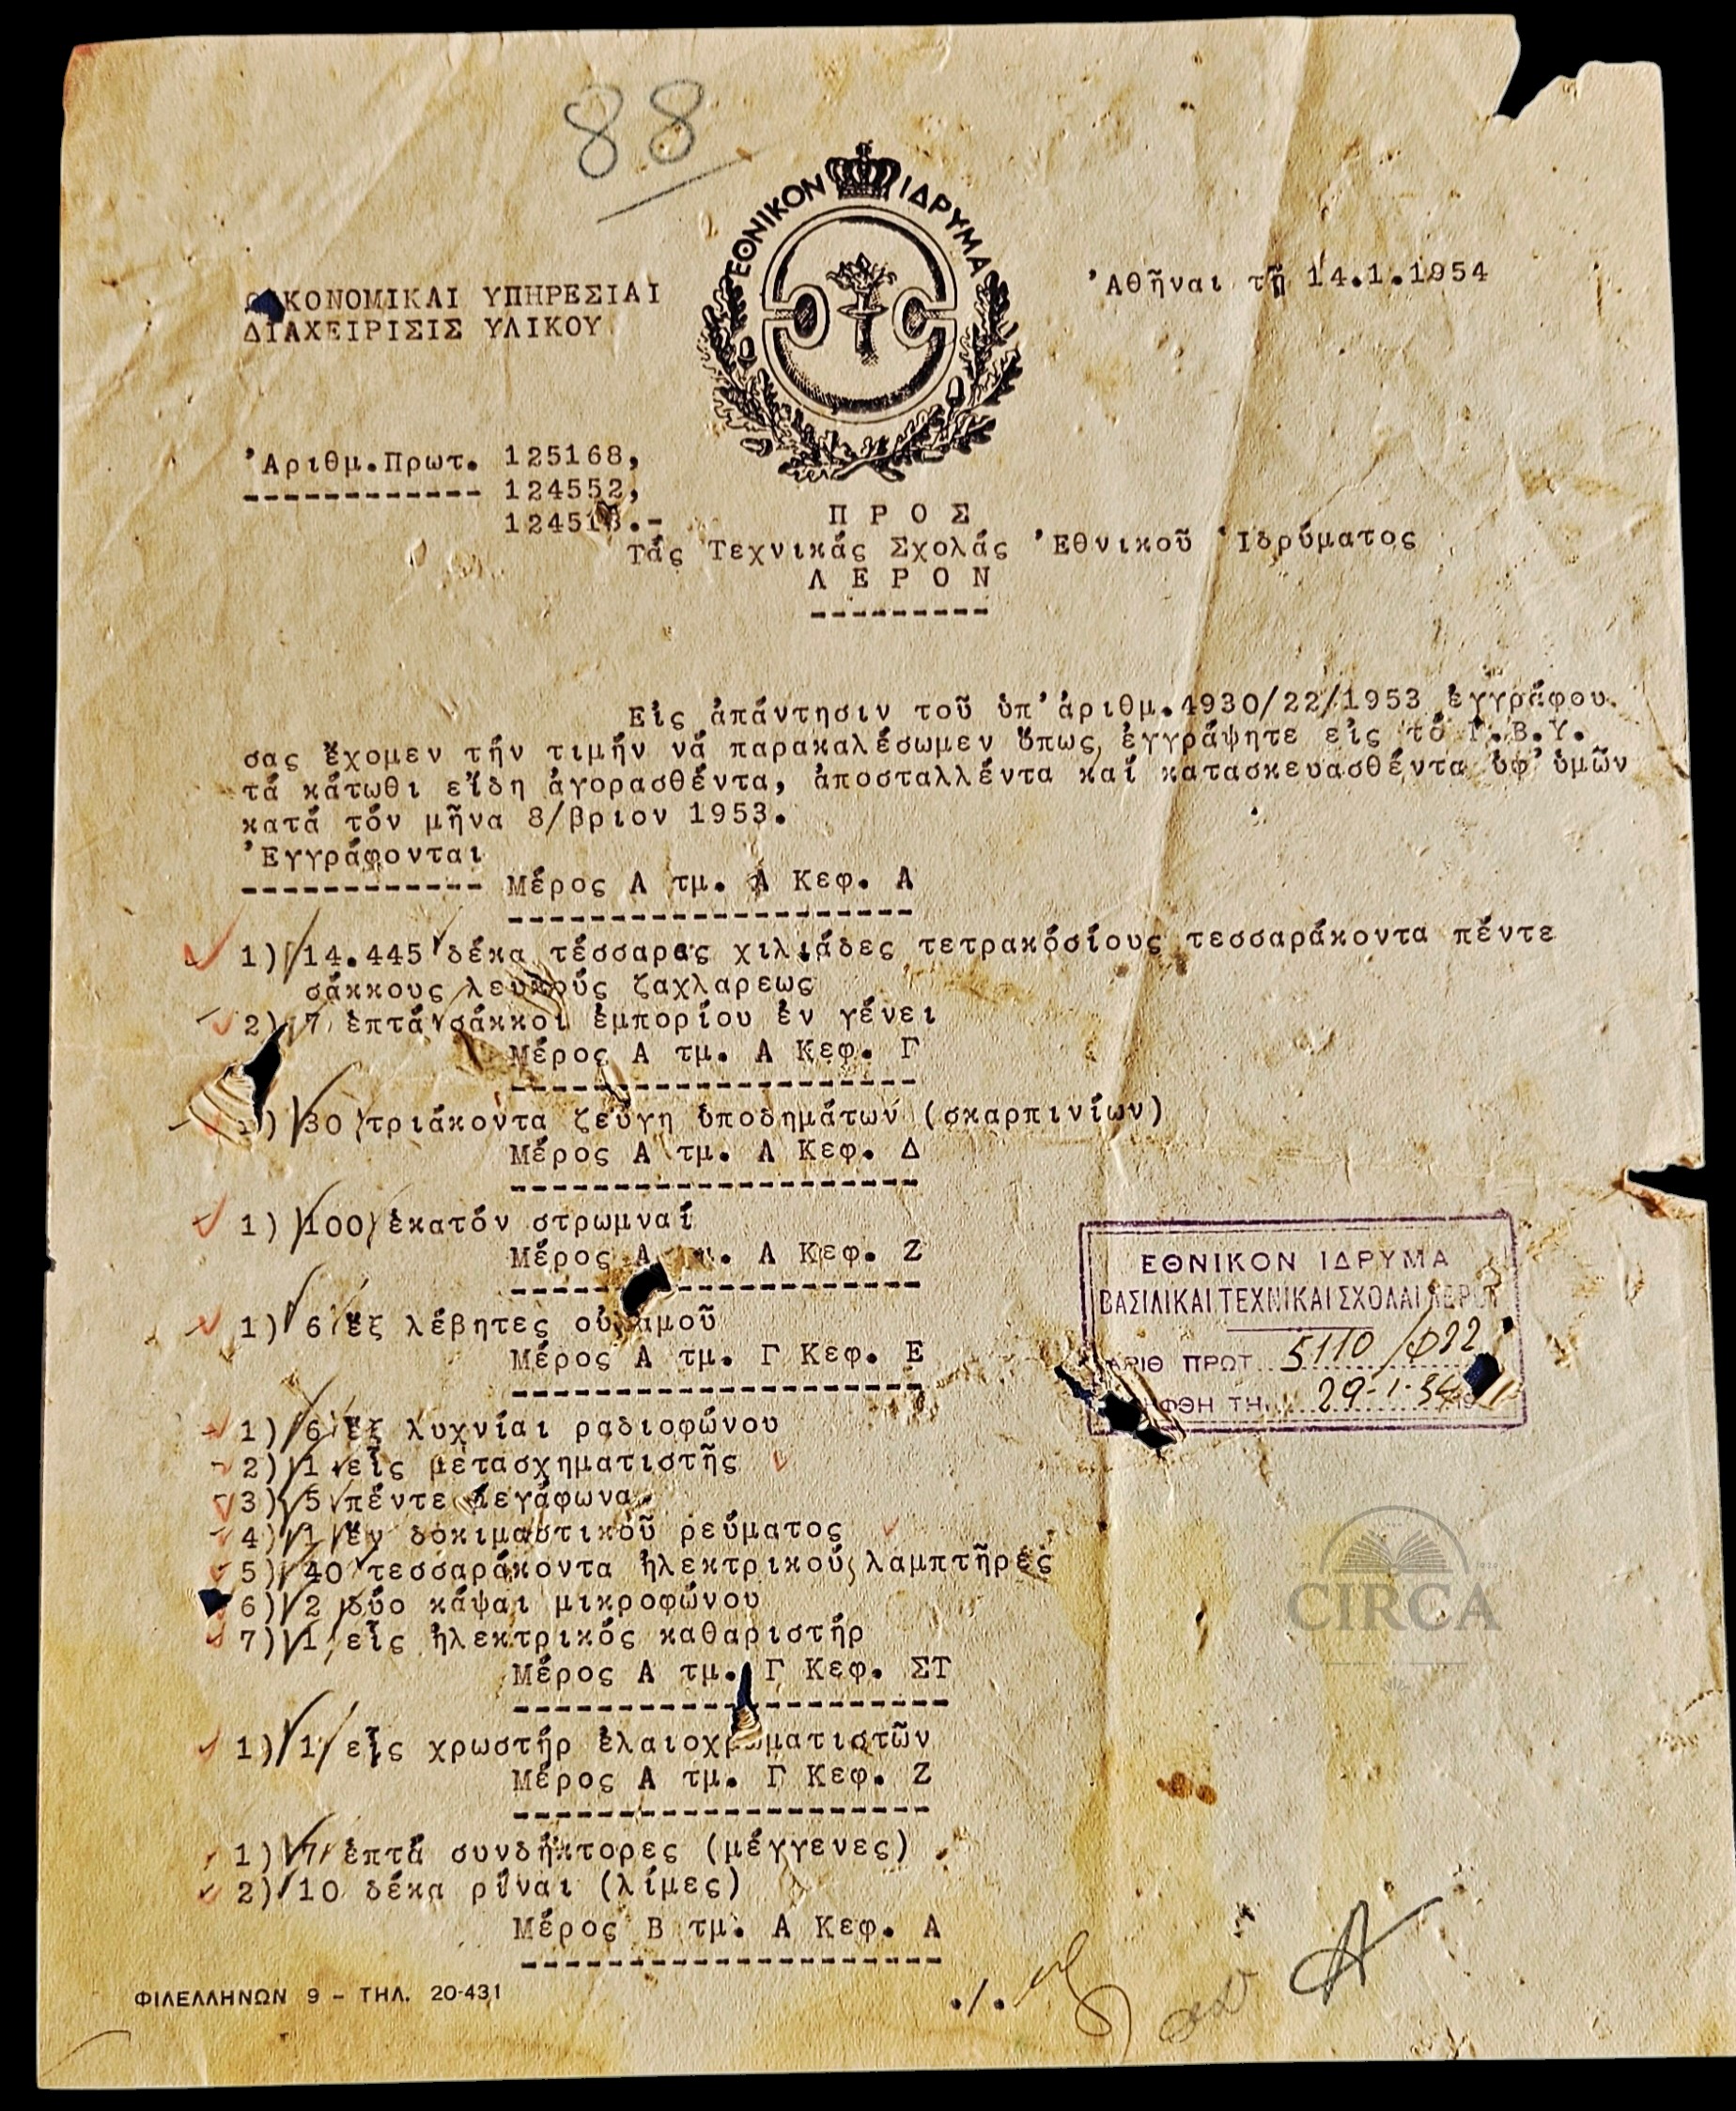 88
ΕΘΝΙΚΟΝ ΙΔΡΥΜΑ
ΟΙΚΟΝΟΜΙΚΑΙ ΥΠΗΡΕΣΙΑΙ
ΔΙΑΧΕΙΡΙΣΙΣ ΥΛΙΚΟΥ
Ἀθῆναι τῇ 14.1.1954
Ἀριθμ.Πρωτ. 125168,
124552,
12451 .-
Π Ρ Ο Σ
Τάς Τεχνικάς Σχολάς Ἐθνικοῦ Ἱδρύματος
Λ Ε Ρ Ο Ν
Εἰς ἀπάντησιν τοῦ ὑπ'ἀριθμ.4930/22/1953 ἐγγράφου
σας ἔχομεν τήν τιμήν νά παρακαλέσωμεν ὅπως ἐγγράψητε εἰς τό Γ.Β.Υ.
τά κάτωθι εἴδη ἀγορασθέντα, ἀποσταλλέντα καί κατασκευασθέντα ὑφ'ὑμῶν
κατά τόν μῆνα 8/βριον 1953.
Ἐγγράφονται
Μέρος Α τμ. Α Κεφ. Α
1) 14.445 δέκα τέσσαρας χιλιάδες τετρακόσίους τεσσαράκοντα πέντε
σάκκους λευκούς ζαχλαρεως
2) 7 ἑπτά σάκκοι ἐμπορίου ἐν γένει
Μέρος Α τμ. Α Κεφ. Γ
) 30 τριάκοντα ζεύγη ὑποδημάτων (σκαρπινίων)
Μέρος Α τμ. Α Κεφ. Δ
1) 100 ἑκατόν στρωμναί
Μέρος Α τμ. Α Κεφ. Ζ
1) 6 ἕξ λέβητες
Μέρος Α τμ. Γ Κεφ. Ε
1) 6 ἕξ λυχνίαι ραδιοφώνου
2) 1 εἷς μετασχηματιστῆς
3) 5 πέντε μεγάφωνα
4) 1 ἕν δοκιμαστικοῦ ρεύματος
5) 40 τεσσαράκοντα ἠλεκτρικούς λαμπτῆρες
6) 2 δύο κάψαι μικροφώνου
7) 1 εἷς ἠλεκτρικός καθαριστήρ
Μέρος Α τμ. Γ Κεφ. ΣΤ
1) 1 εἷς χρωστήρ ἐλαιοχρωματιστῶν
Μέρος Α τμ. Γ Κεφ. Ζ
1) 7 ἑπτά συνδήκτορες (μέγγενες)
2) 10 δέκα ρίναι (λίμες)
Μέρος Β τμ. Α Κεφ. Α
./.
ΕΘΝΙΚΟΝ ΙΔΡΥΜΑ
ΒΑΣΙΛΙΚΑΙ ΤΕΧΝΙΚΑΙ ΣΧΟΛΑΙ ΛΕΡΟΥ
ΑΡΙΘ ΠΡΩΤ. 5110/Φ22
ΦΘΗ ΤΗ 29-1-54
CIRCA
ΦΙΛΕΛΛΗΝΩΝ 9 – ΤΗΛ. 20-431